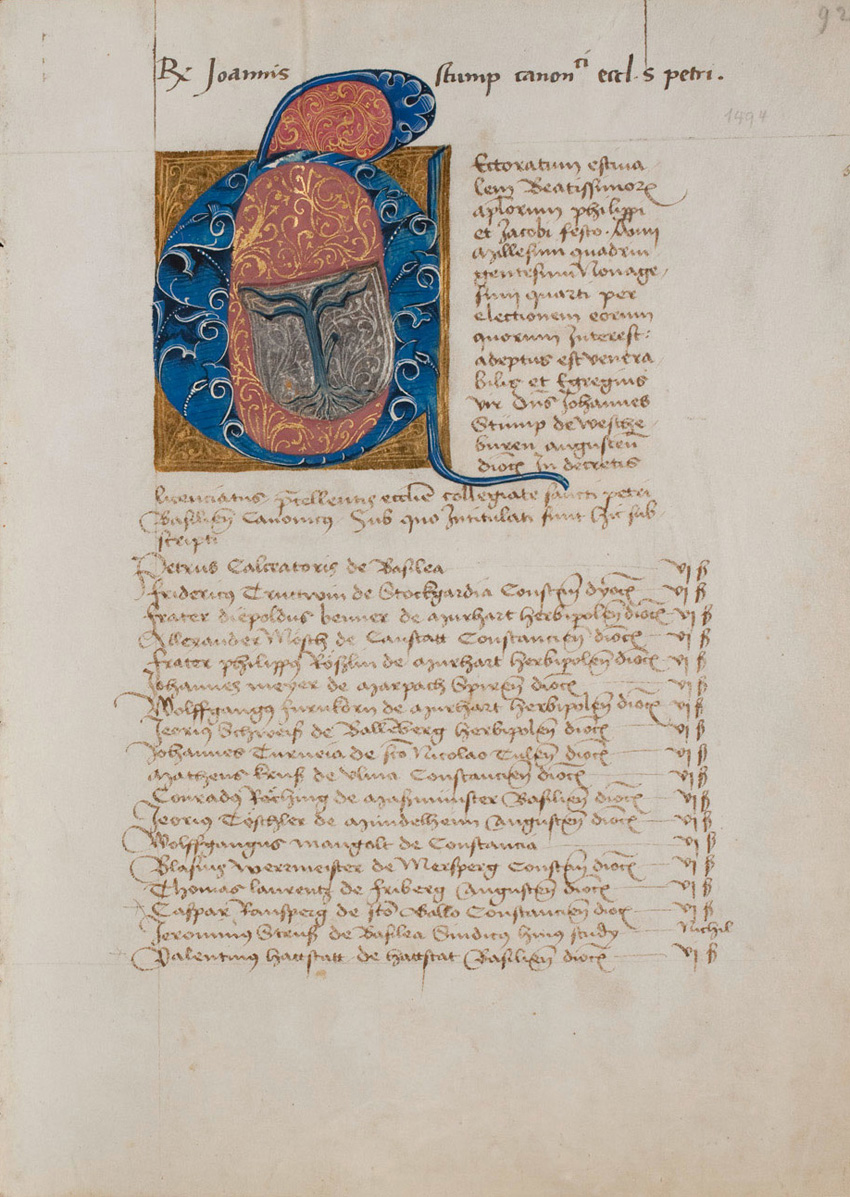 92
Rx Joannis stump canonici eccl. s petri.
1494
Rectoratum estiva
lem Beatissimorx
aplorum philippi
et Jacobi festo. Anni
Millesimi quadrin
gentesimi Nonage,
simi quarti per
electionem eorum
quorum Interest:
adeptus est venera,
bilis et Egregius
vir dns Johannes
Stump de Westhe,
buren augusten
dioc In decretis
licenciatus, p̄cellentis ecclīe collegiate sancti petri
Basilien Canonicus. Sub quo Intitulati sunt hic sub,
scripti
Petrus Calceatoris de Basilea vi ß
Fridericus de Stockgardia Constcn dyoc vi ß
Frater diepoldus benner de Murhart herbipolen dioc vi ß
Allexander Mösch de Canstatt Constancien dioc vi ß
Frater philippus Röszlin de Murhart herbipolen dioc vi ß
Johannes meyer de Marpach Spiren dioc vi ß
Wolffgangus furnkorn de Murhart herbipolen dioc vi ß
Jeorius Schweiß de Ballēberg herbipolen dioc vi ß
Johannes de sco Nicolao Tulen dioc vi ß
Matheus kruß de Ulma Constancien dioc vi ß
Conradus Röching de Masmünster Basilien dioc vi ß
Jeorius Töschler de Mündelheim Augusten dioc vi ß
Wolffgangus mangolt de Constancia vi ß
Blasius Wermeister de Mersperg Constcn dioc vi ß
Thomas laurentz de friberg Augusten dioc vi ß
Caspar Ransperg de sco Gallo Constancien dioc vi ß
Jeronimus Struß de Basilea Sindicus huius study Nichil
Valentinus hattstatt de hattstat Basilien dioc vi ß